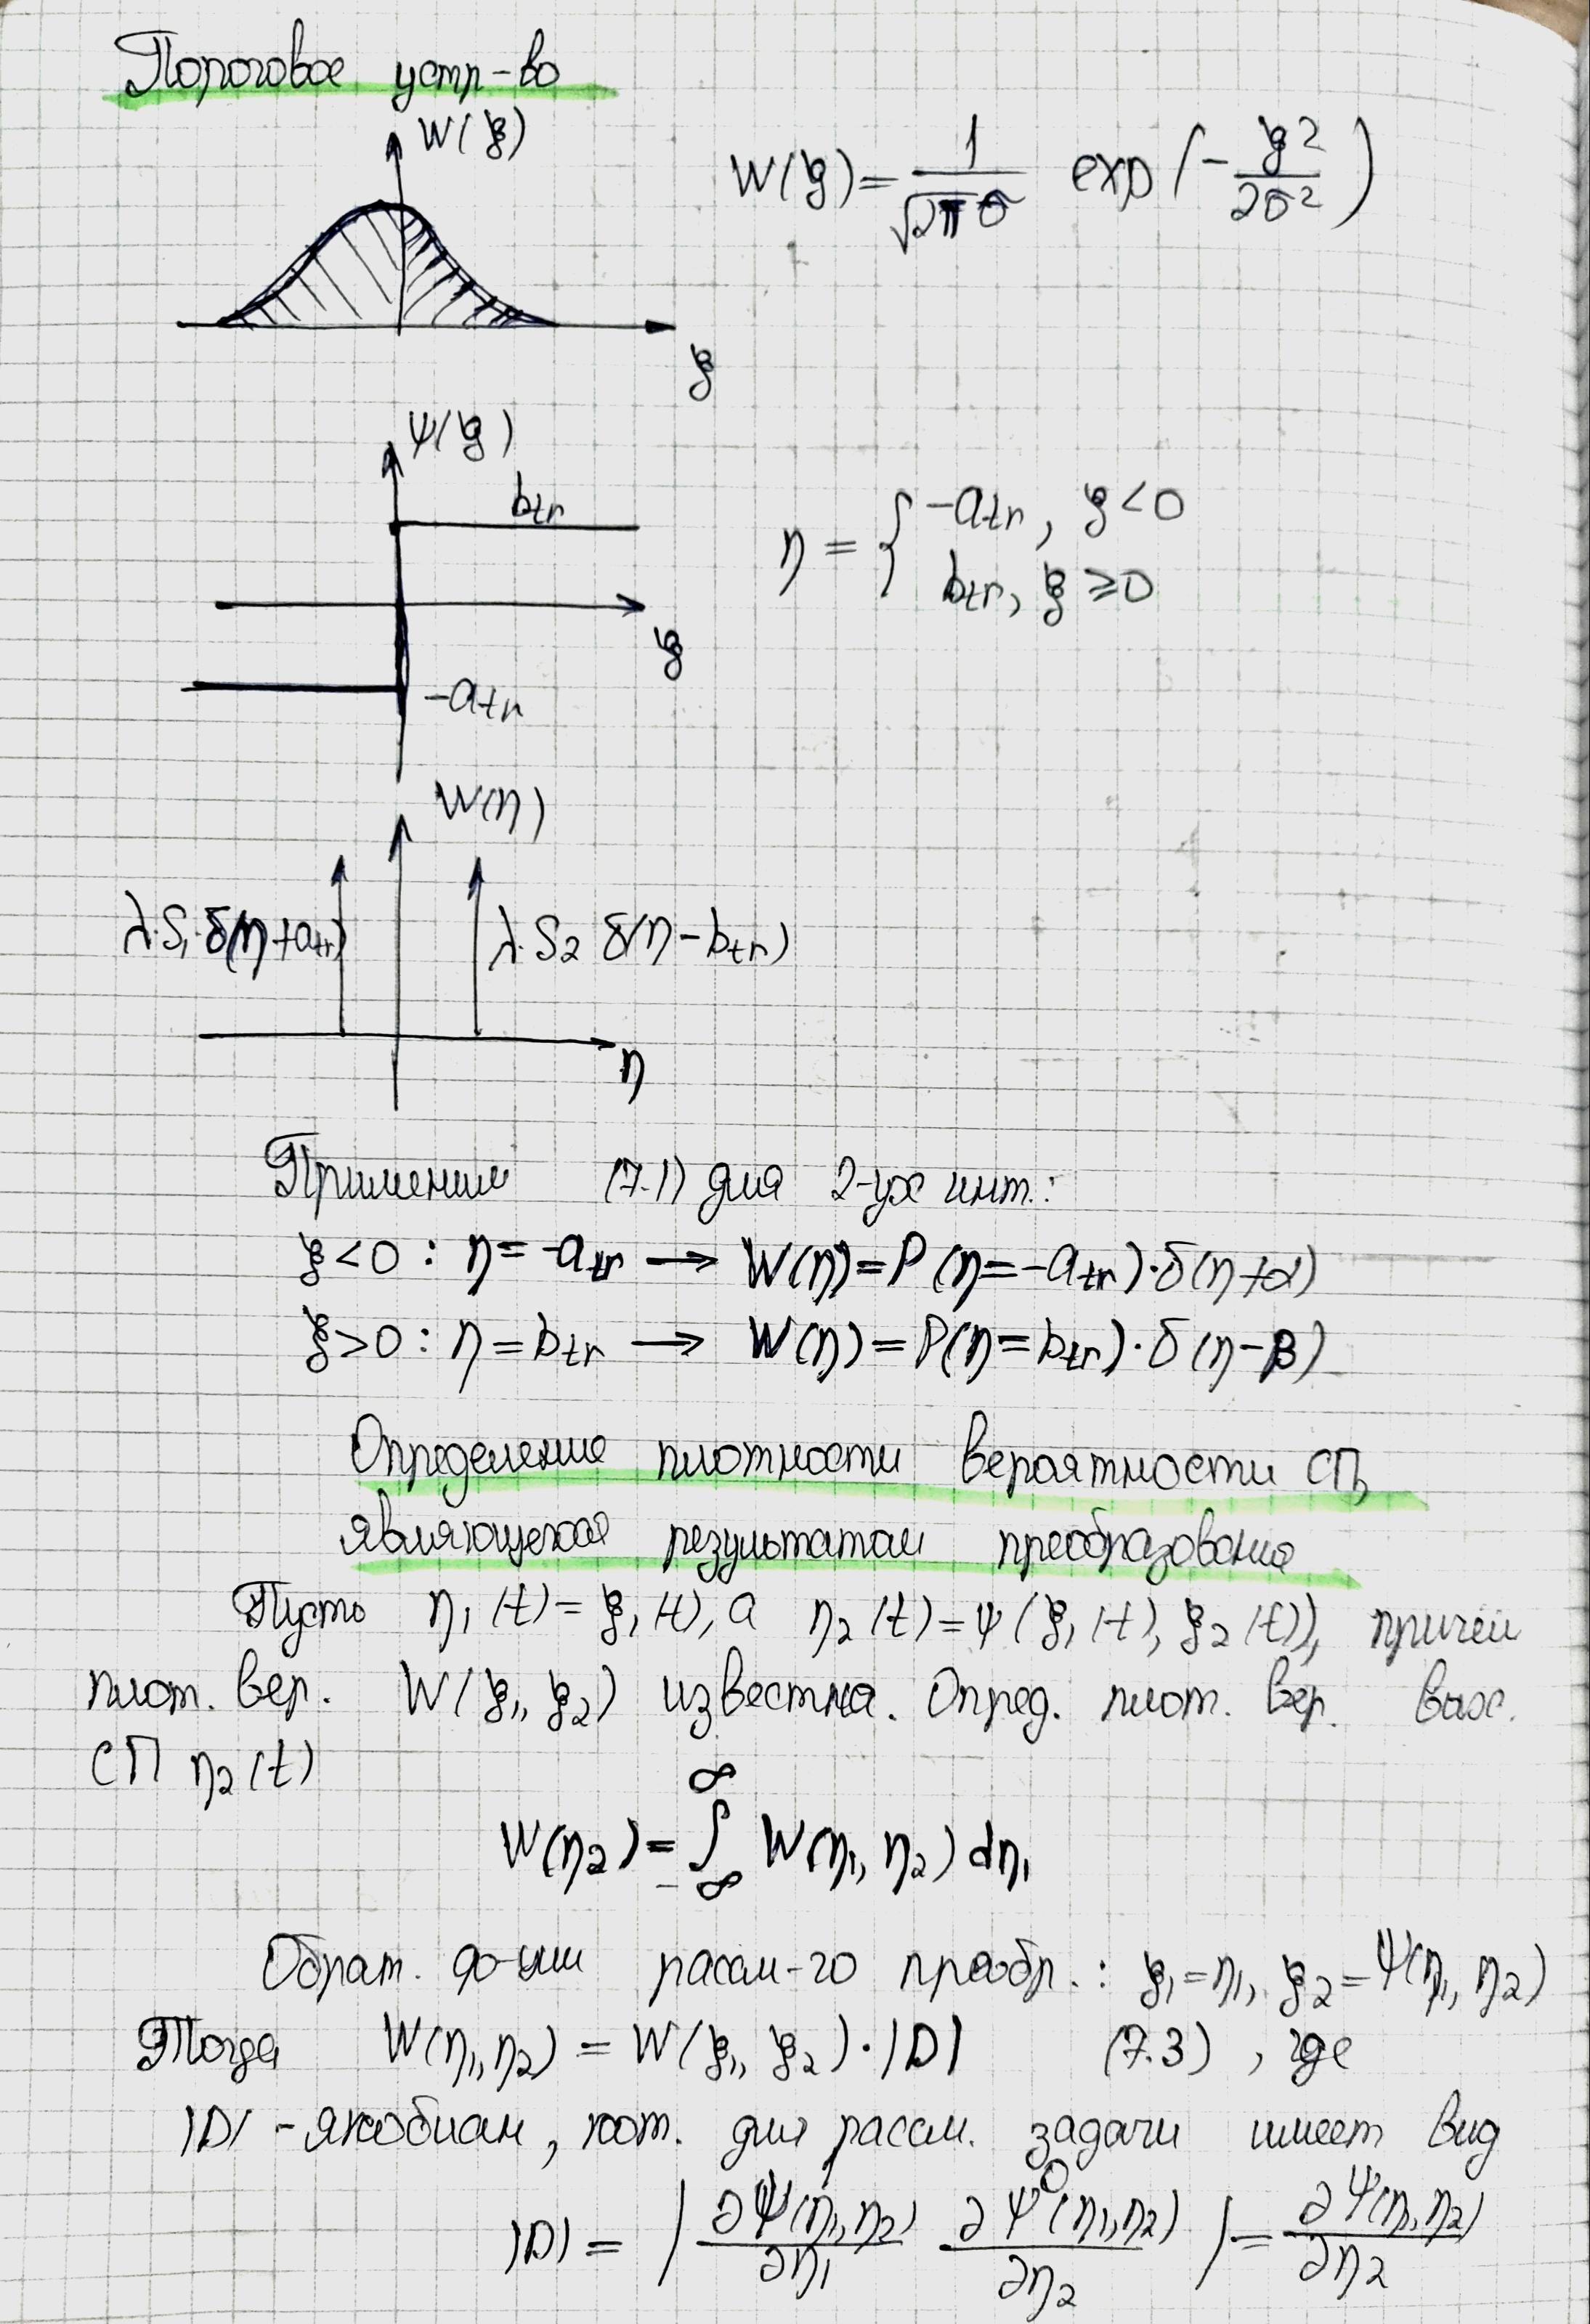 Пороговое устр-во
W(ξ)
W(ξ) = 1/(√2π σ) exp(-ξ²/2σ²)
ξ
Ψ(ξ)
b_tr
η = { -a_tr, ξ<0
b_tr, ξ ≥ 0
ξ
-a_tr
W(η)
λ·S₁·δ(η+a_tr) λ·S₂ δ(η-b_tr)
η
Применим (7.1) для 2-ух инт.:
ξ<0 : η = -a_tr → W(η) = P(η=-a_tr)·δ(η+α)
ξ>0 : η = b_tr → W(η) = P(η=b_tr)·δ(η-β)
Определение плотности вероятности СП,
являющегося результатом преобразования
Пусть η₁(t) = ξ₁(t), а η₂(t) = ψ(ξ₁(t), ξ₂(t)), причём
плот. вер. W(ξ₁, ξ₂) известна. Опред. плот. вер. вых.
СП η₂(t)
W(η₂) = ∫_{-∞}^{∞} W(η₁, η₂) dη₁
Обрат. ф-ции рассм-го преобр.: ξ₁=η₁, ξ₂=Ψ(η₁, η₂)
Тогда W(η₁,η₂) = W(ξ₁, ξ₂)·|D| (7.3), где
|D| - якобиан, кот. для рассм. задачи имеет вид
|D| = | ∂Ψ(η₁,η₂)/∂η₁ ∂Ψ⁰(η₁,η₂)/∂η₂ | = ∂Ψ(η₁,η₂)/∂η₂